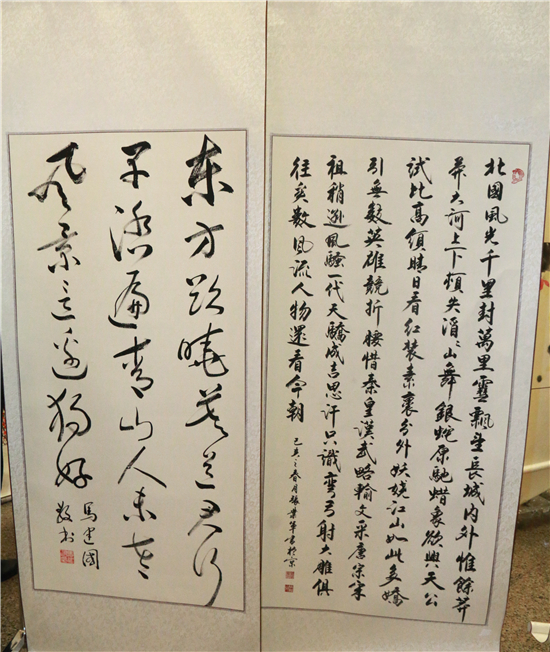 北國風光千里封萬里雪飄望長城内外惟餘莽
莽大河上下頓失滔〻山舞銀蛇原馳蜡象欲與天公
試比高須晴日看红装素裹分外妖娆江山如此多嬌
引無數英雄競折腰惜秦皇漢武略輸文采唐宗宋
祖稍遜風騷一代天驕成吉思汗只識彎弓射大雕俱
往矣數風流人物還看今朝
己亥之春月張業軍書於京
东方欲曉莫道君行
早踏遍青山人未老
風景这边獨好
馬建國
敬书